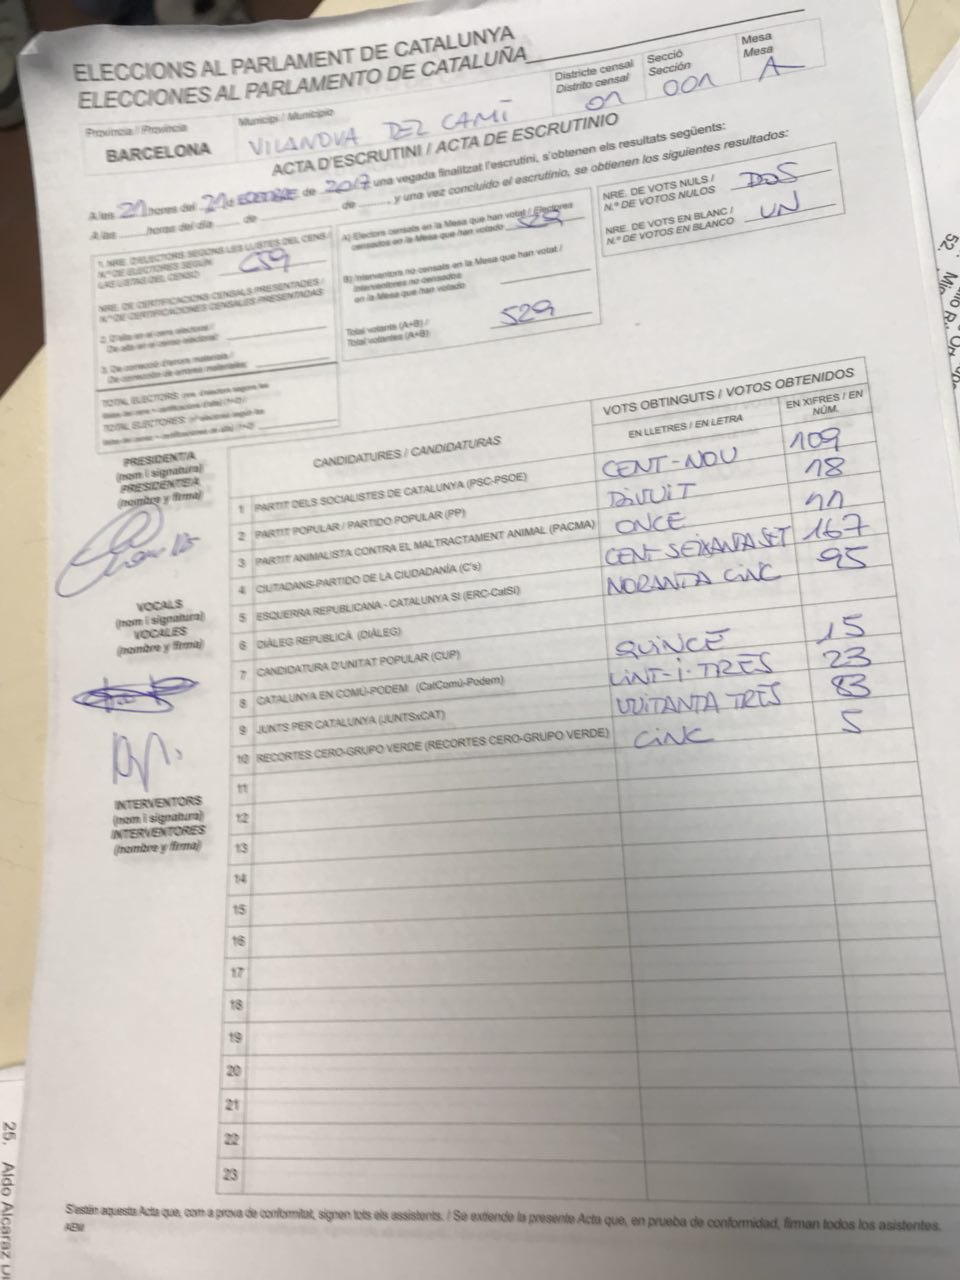 ELECCIONS AL PARLAMENT DE CATALUNYA
ELECCIONES AL PARLAMENTO DE CATALUÑA
Província / Provincia
BARCELONA
Municipi / Municipio
VILANOVA DEL CAMÍ
Districte censal
Distrito censal
01
Secció
Sección
001
Mesa
Mesa
A
ACTA D'ESCRUTINI / ACTA DE ESCRUTINIO
A les 21 hores del 21 d de 2017 una vegada finalitzat l'escrutini, s'obtenen els resultats següents:
A las horas del día de de , y una vez concluido el escrutinio, se obtienen los siguientes resultados:
1. NRE. D'ELECTORS SEGONS LES LLISTES DEL CENS /
N.º DE ELECTORES SEGÚN
LAS LISTAS DEL CENSO
NRE. DE CERTIFICACIONS CENSALS PRESENTADES /
N.º DE CERTIFICACIONES CENSALES PRESENTADAS
2. D'alta en el cens electoral /
De alta en el censo electoral:
3. De correcció d'errors materials /
De corrección de errores materiales:
A) Electors censats en la Mesa que han votat / Electores
censados en la Mesa que han votado 529
B) Interventors no censats en la Mesa que han votat /
Interventores no censados
en la Mesa que han votado
Total votants (A+B) /
Total votantes (A+B) 529
NRE. DE VOTS NULS /
N.º DE VOTOS NULOS DOS
NRE. DE VOTS EN BLANC /
N.º DE VOTOS EN BLANCO UN
PRESIDENT/A
(nom i signatura)
PRESIDENTE/A
(nombre y firma)
VOCALS
(nom i signatura)
VOCALES
(nombre y firma)
INTERVENTORS
(nom i signatura)
INTERVENTORES
(nombre y firma)
CANDIDATURES / CANDIDATURAS
VOTS OBTINGUTS / VOTOS OBTENIDOS
EN LLETRES / EN LETRA
EN XIFRES / EN NÚM.
1 PARTIT DELS SOCIALISTES DE CATALUNYA (PSC-PSOE) CENT-NOU 109
2 PARTIT POPULAR / PARTIDO POPULAR (PP) DIVUIT 18
3 PARTIT ANIMALISTA CONTRA EL MALTRACTAMENT ANIMAL (PACMA) ONCE 11
4 CIUTADANS-PARTIDO DE LA CIUDADANÍA (C's) CENT SEIXANASET 167
5 ESQUERRA REPUBLICANA - CATALUNYA SI (ERC-CatSí) NORANTA CINC 95
6 DIÀLEG REPUBLICÀ (DIÀLEG)
7 CANDIDATURA D'UNITAT POPULAR (CUP) QUINCE 15
8 CATALUNYA EN COMÚ-PODEM (CatComú-Podem) VINT-I-TRES 23
9 JUNTS PER CATALUNYA (JUNTSxCAT) VUITANTA TRES 83
10 RECORTES CERO-GRUPO VERDE (RECORTES CERO-GRUPO VERDE) CINC 5
11
12
13
14
15
16
17
18
19
20
21
22
23
S'estén aquesta Acta que, com a prova de conformitat, signen tots els assistents. / Se extiende la presente Acta que, en prueba de conformidad, firman todos los asistentes.
25. Aldo Alcaraz
52.